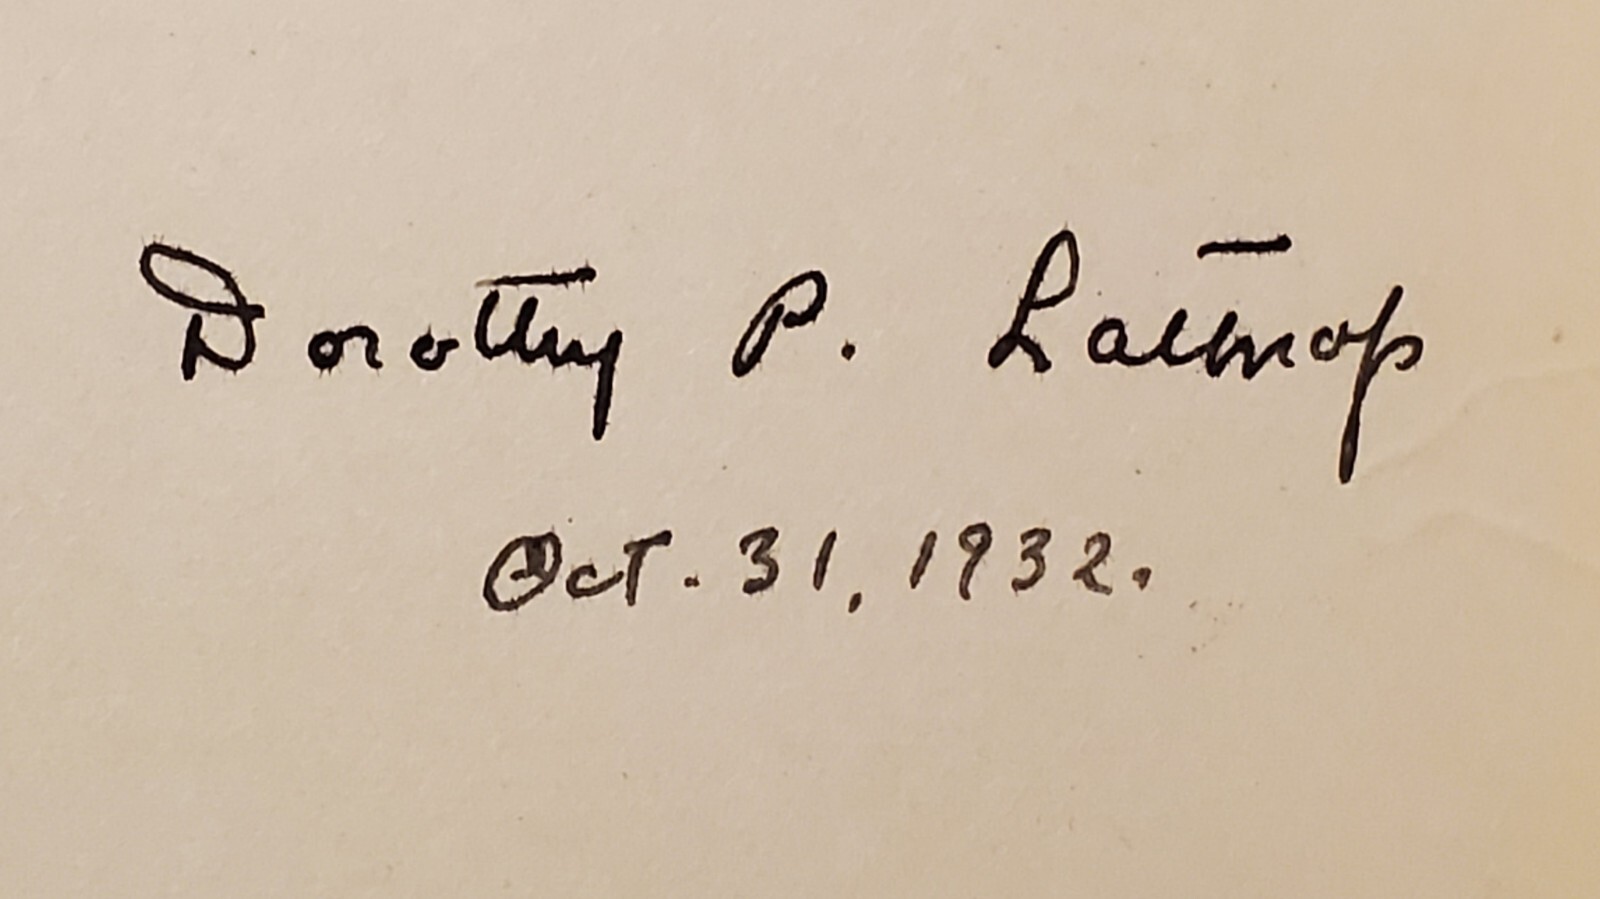 Dorothy P. Lathrop
Oct. 31, 1932.